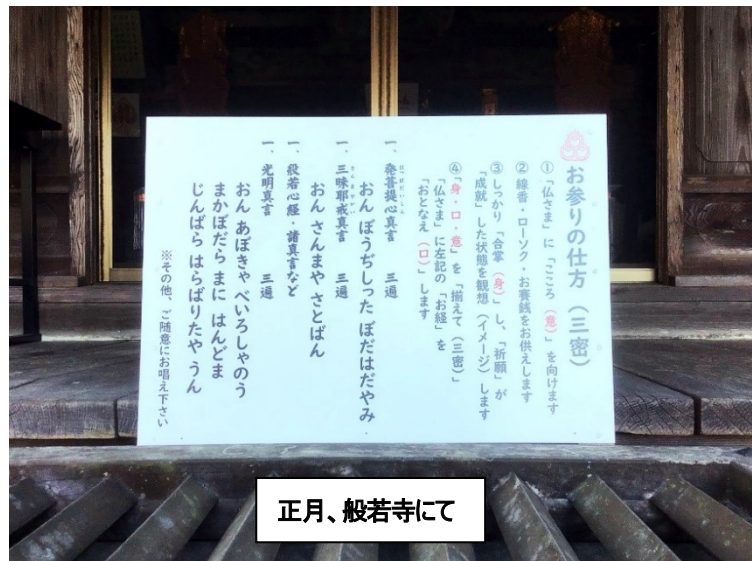 お参りの仕方（三密）
①「仏さま」に「こころ（意）」を向けます
②線香・ローソク・お賽銭をお供えします
③しっかり「合掌（身）」し、「祈願」が
「成就」した状態を観想（イメージ）します
④「身・口・意」を「揃えて（三密）」
「仏さま」に左記の「お経」を
「おとなえ（口）」します
一、発菩提心真言 三遍
おん ぼうぢしった ぼだはだやみ
一、三昧耶戒真言 三遍
おん さんまや さとばん
一、般若心経・諸真言など
一、光明真言 三遍
おん あぼきゃ べいろしゃのう
まかぼだら まに はんどま
じんばら はらばりたや うん
※その他、ご随意にお唱え下さい
正月、般若寺にて